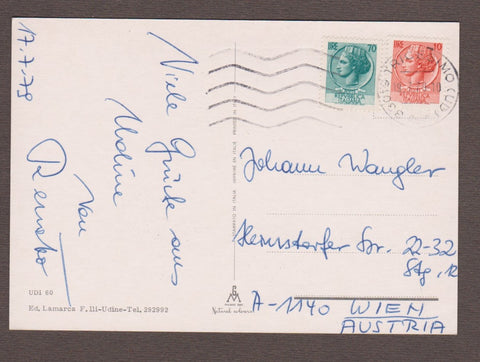 17.7.79
Viele Grüße aus
Udine
von
Renato
UDI 60
Ed. Lamarca F.lli-Udine-Tel. 292992
LIRE 70
LIRE 10
Johann Wangler
Hernstorfer Str. 22-32
Stg. 12
A-1140 WIEN
AUSTRIA